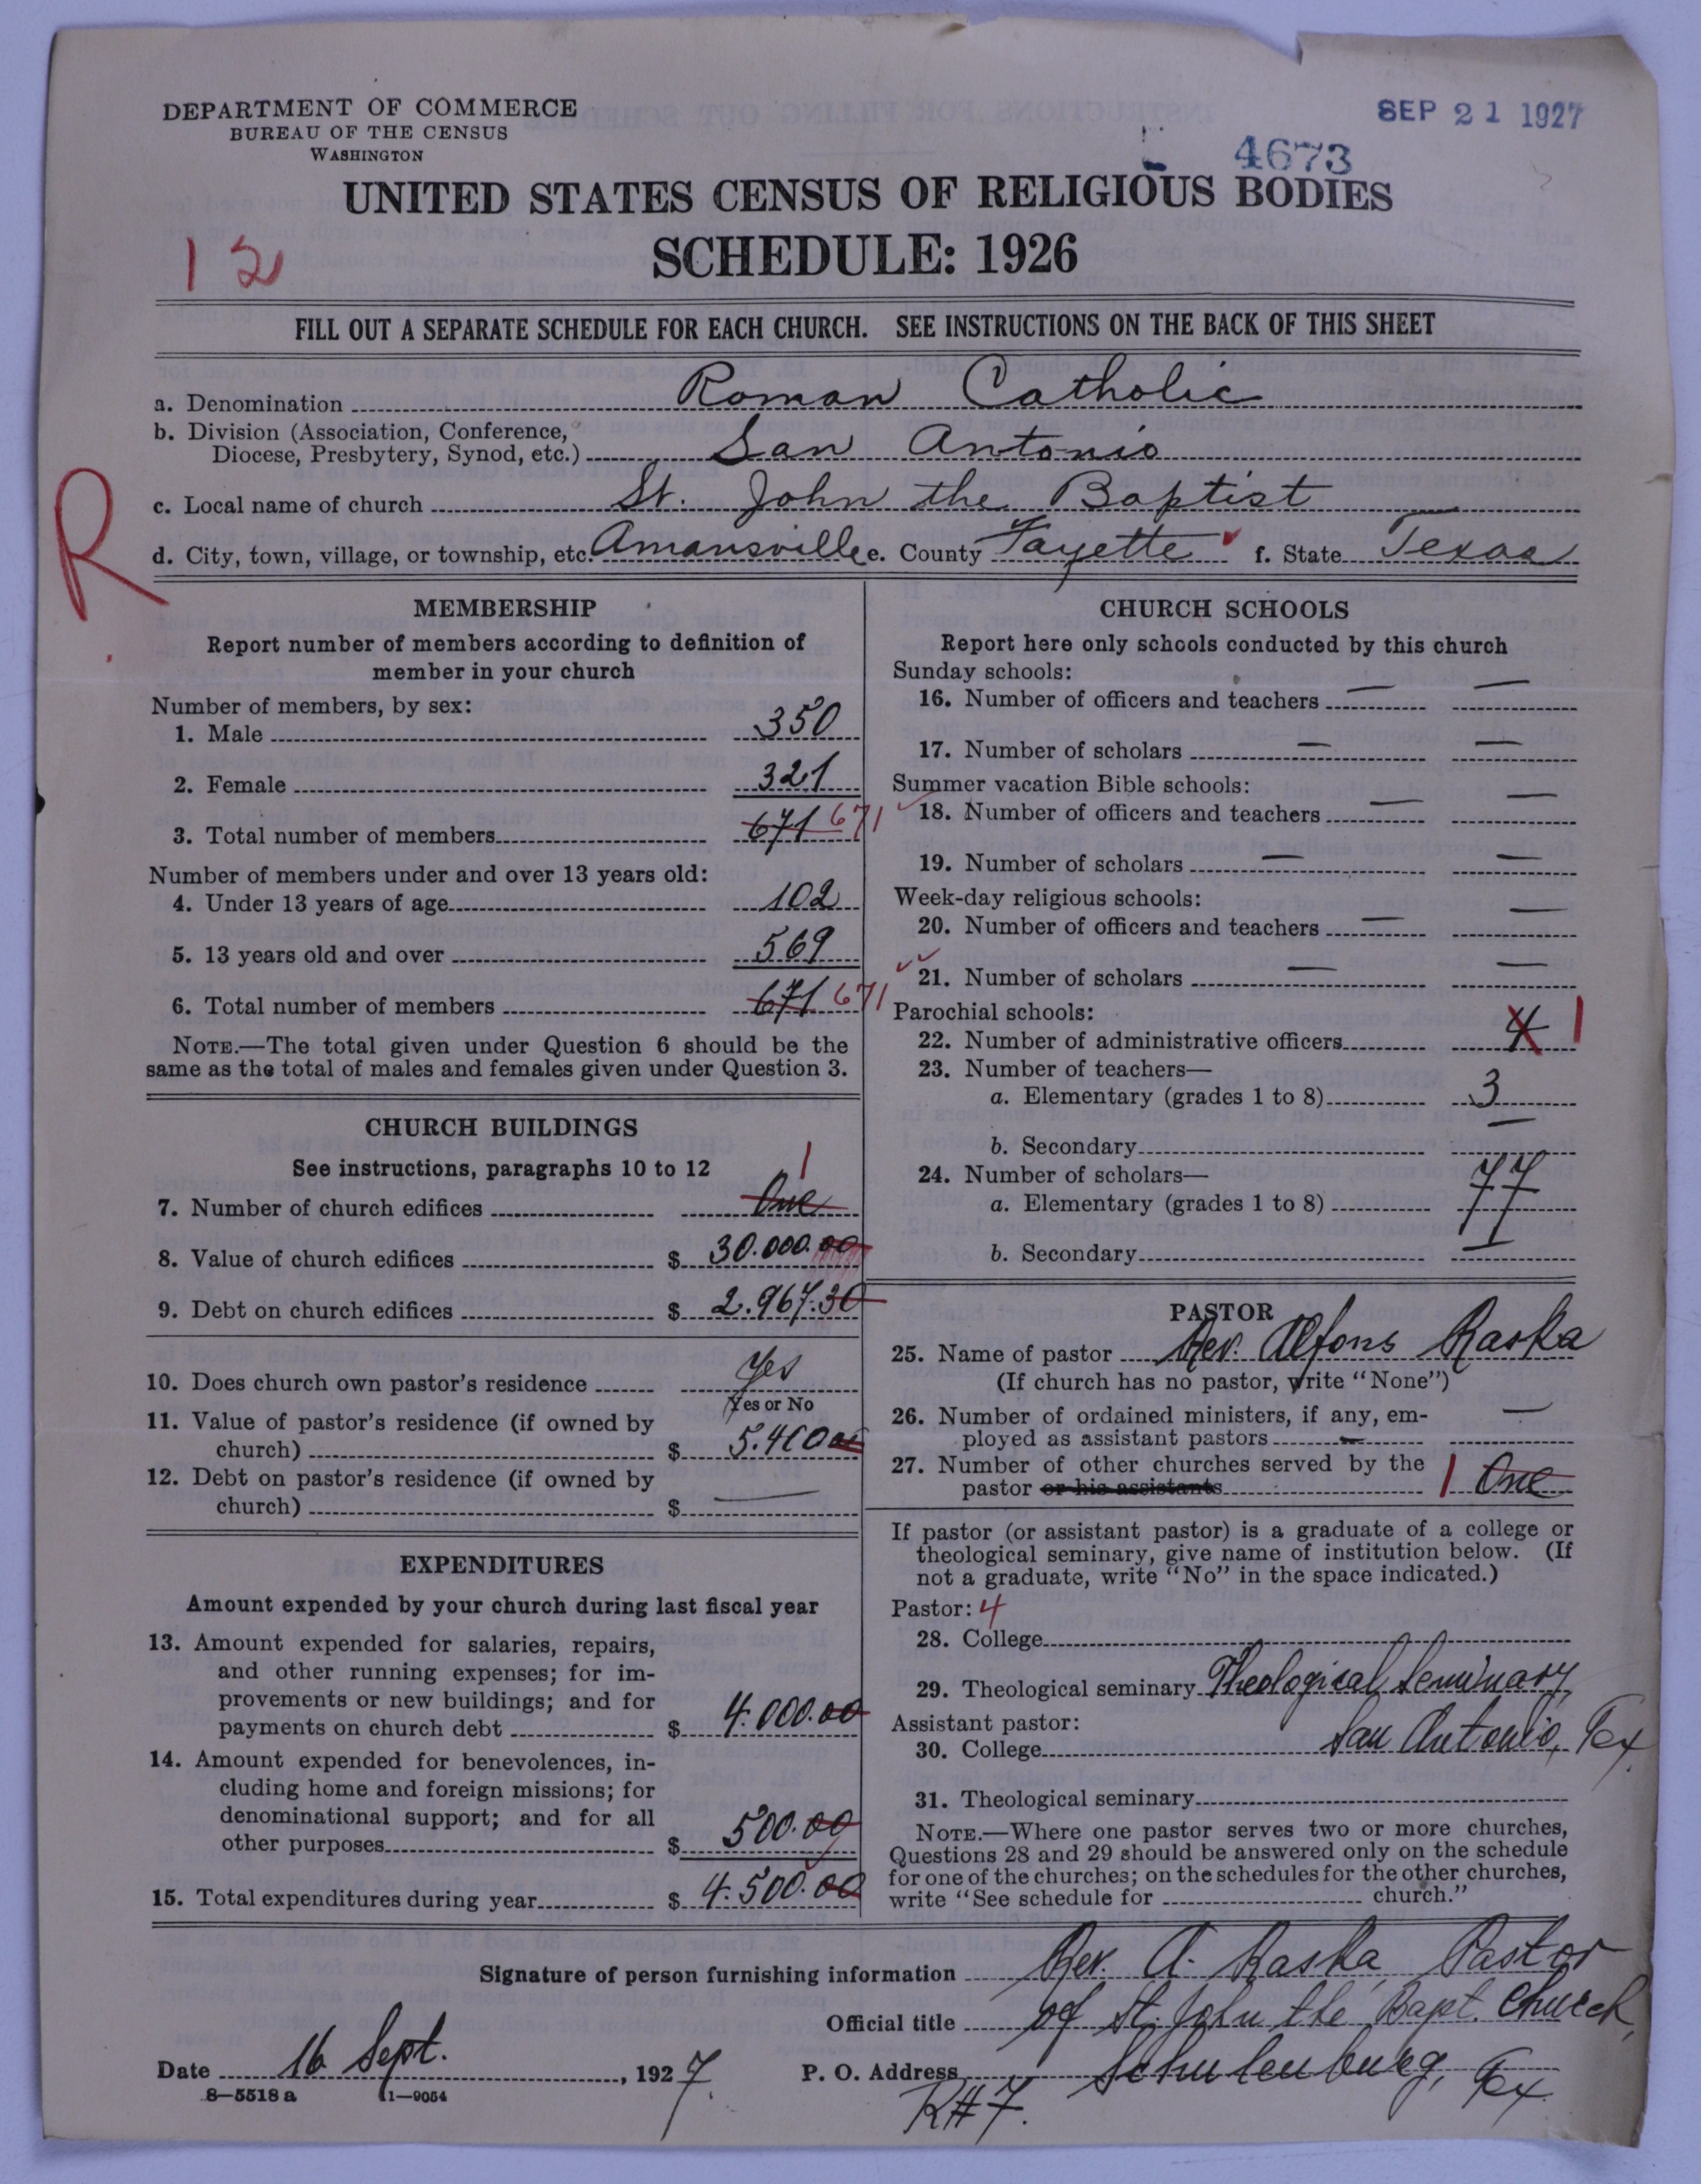 DEPARTMENT OF COMMERCE
BUREAU OF THE CENSUS
WASHINGTON
SEP 21 1927
4673
UNITED STATES CENSUS OF RELIGIOUS BODIES
SCHEDULE: 1926
12
FILL OUT A SEPARATE SCHEDULE FOR EACH CHURCH. SEE INSTRUCTIONS ON THE BACK OF THIS SHEET
R
a. Denomination Roman Catholic
b. Division (Association, Conference,
Diocese, Presbytery, Synod, etc.) San Antonio
c. Local name of church St. John the Baptist
d. City, town, village, or township, etc. Amansville e. County Fayette f. State Texas
MEMBERSHIP
Report number of members according to definition of
member in your church
Number of members, by sex:
1. Male 350
2. Female 321
3. Total number of members 671 671
Number of members under and over 13 years old:
4. Under 13 years of age 102
5. 13 years old and over 569
6. Total number of members 671 671
NOTE.—The total given under Question 6 should be the
same as the total of males and females given under Question 3.
CHURCH BUILDINGS
See instructions, paragraphs 10 to 12
7. Number of church edifices One 1
8. Value of church edifices $ 30.000.00
9. Debt on church edifices $ 2.967.30
10. Does church own pastor's residence Yes
Yes or No
11. Value of pastor's residence (if owned by
church) $
12. Debt on pastor's residence (if owned by
church) $ —
EXPENDITURES
Amount expended by your church during last fiscal year
13. Amount expended for salaries, repairs,
and other running expenses; for im-
provements or new buildings; and for
payments on church debt $ 4.000.00
14. Amount expended for benevolences, in-
cluding home and foreign missions; for
denominational support; and for all
other purposes $ 500.00
15. Total expenditures during year $ 4.500.00
CHURCH SCHOOLS
Report here only schools conducted by this church
Sunday schools:
16. Number of officers and teachers — —
17. Number of scholars — —
Summer vacation Bible schools:
18. Number of officers and teachers — —
19. Number of scholars — —
Week-day religious schools:
20. Number of officers and teachers — —
21. Number of scholars — —
Parochial schools:
22. Number of administrative officers 4 1
23. Number of teachers—
a. Elementary (grades 1 to 8) 3
b. Secondary —
24. Number of scholars—
a. Elementary (grades 1 to 8) 77
b. Secondary —
PASTOR
25. Name of pastor Rev. Alfons Raska
(If church has no pastor, write "None")
26. Number of ordained ministers, if any, em-
ployed as assistant pastors — —
27. Number of other churches served by the
pastor or his assistants 1 One
If pastor (or assistant pastor) is a graduate of a college or
theological seminary, give name of institution below. (If
not a graduate, write "No" in the space indicated.)
Pastor: 4
28. College
29. Theological seminary Theological Seminary,
Assistant pastor:
30. College San Antonio, Tex.
31. Theological seminary
NOTE.—Where one pastor serves two or more churches,
Questions 28 and 29 should be answered only on the schedule
for one of the churches; on the schedules for the other churches,
write "See schedule for church."
Signature of person furnishing information Rev. A. Raska, Pastor
Official title of St. John the Bapt. Church,
Date 16 Sept., 1927. P. O. Address Schulenburg, Tex.
R#7.
8—5518 a 11—9054